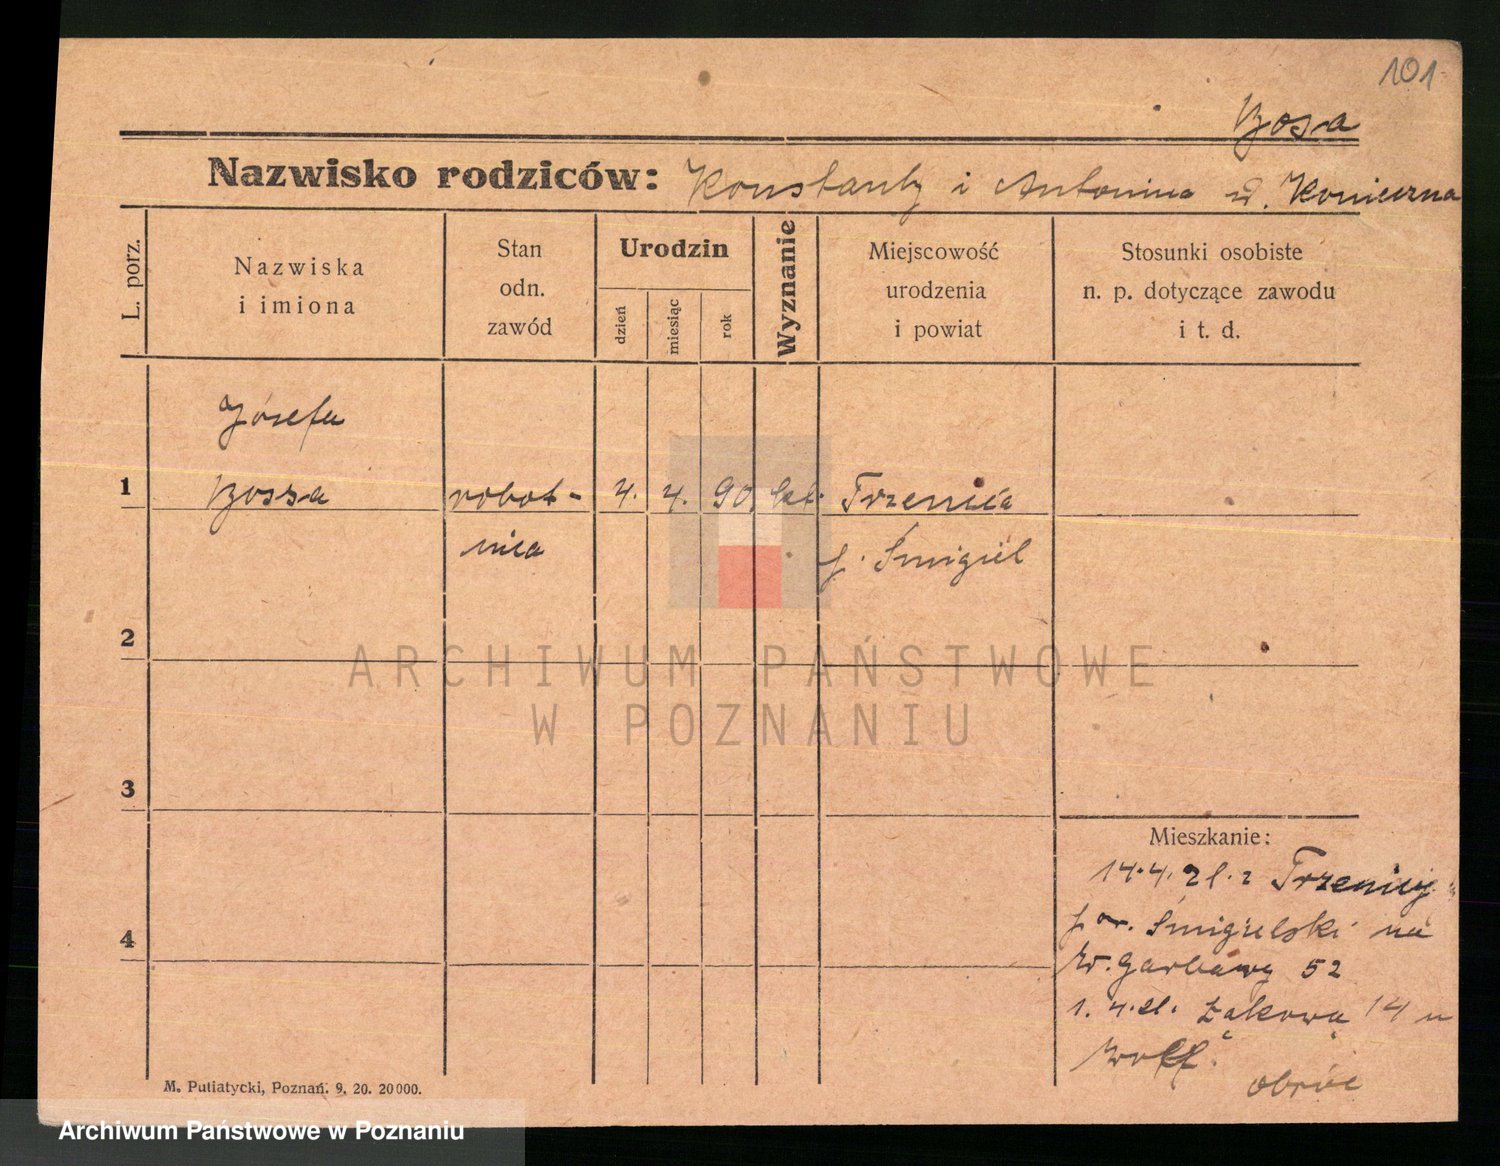 101
Bosa
Nazwisko rodziców: Konstanty i Antonina z d. Konieczna
L. porz.
Nazwiska
i imiona
Stan
odn.
zawód
Urodzin
dzień
miesiąc
rok
Wyznanie
Miejscowość
urodzenia
i powiat
Stosunki osobiste
n. p. dotyczące zawodu
i t. d.
Józefa
1 Bossa robot- 4. 4. 90 kat. Trzenica
nica p. Śmigiel
2
3
4
ARCHIWUM PAŃSTWOWE
W POZNANIU
Mieszkanie:
14.4.21. z Trzenicy
pow. Śmigielski na
W. Garbary 52
1. 4. 21. Łąkowa 14 u
Wolff.
obróc
M. Putiatycki, Poznań. 9. 20. 20000.
Archiwum Państwowe w Poznaniu